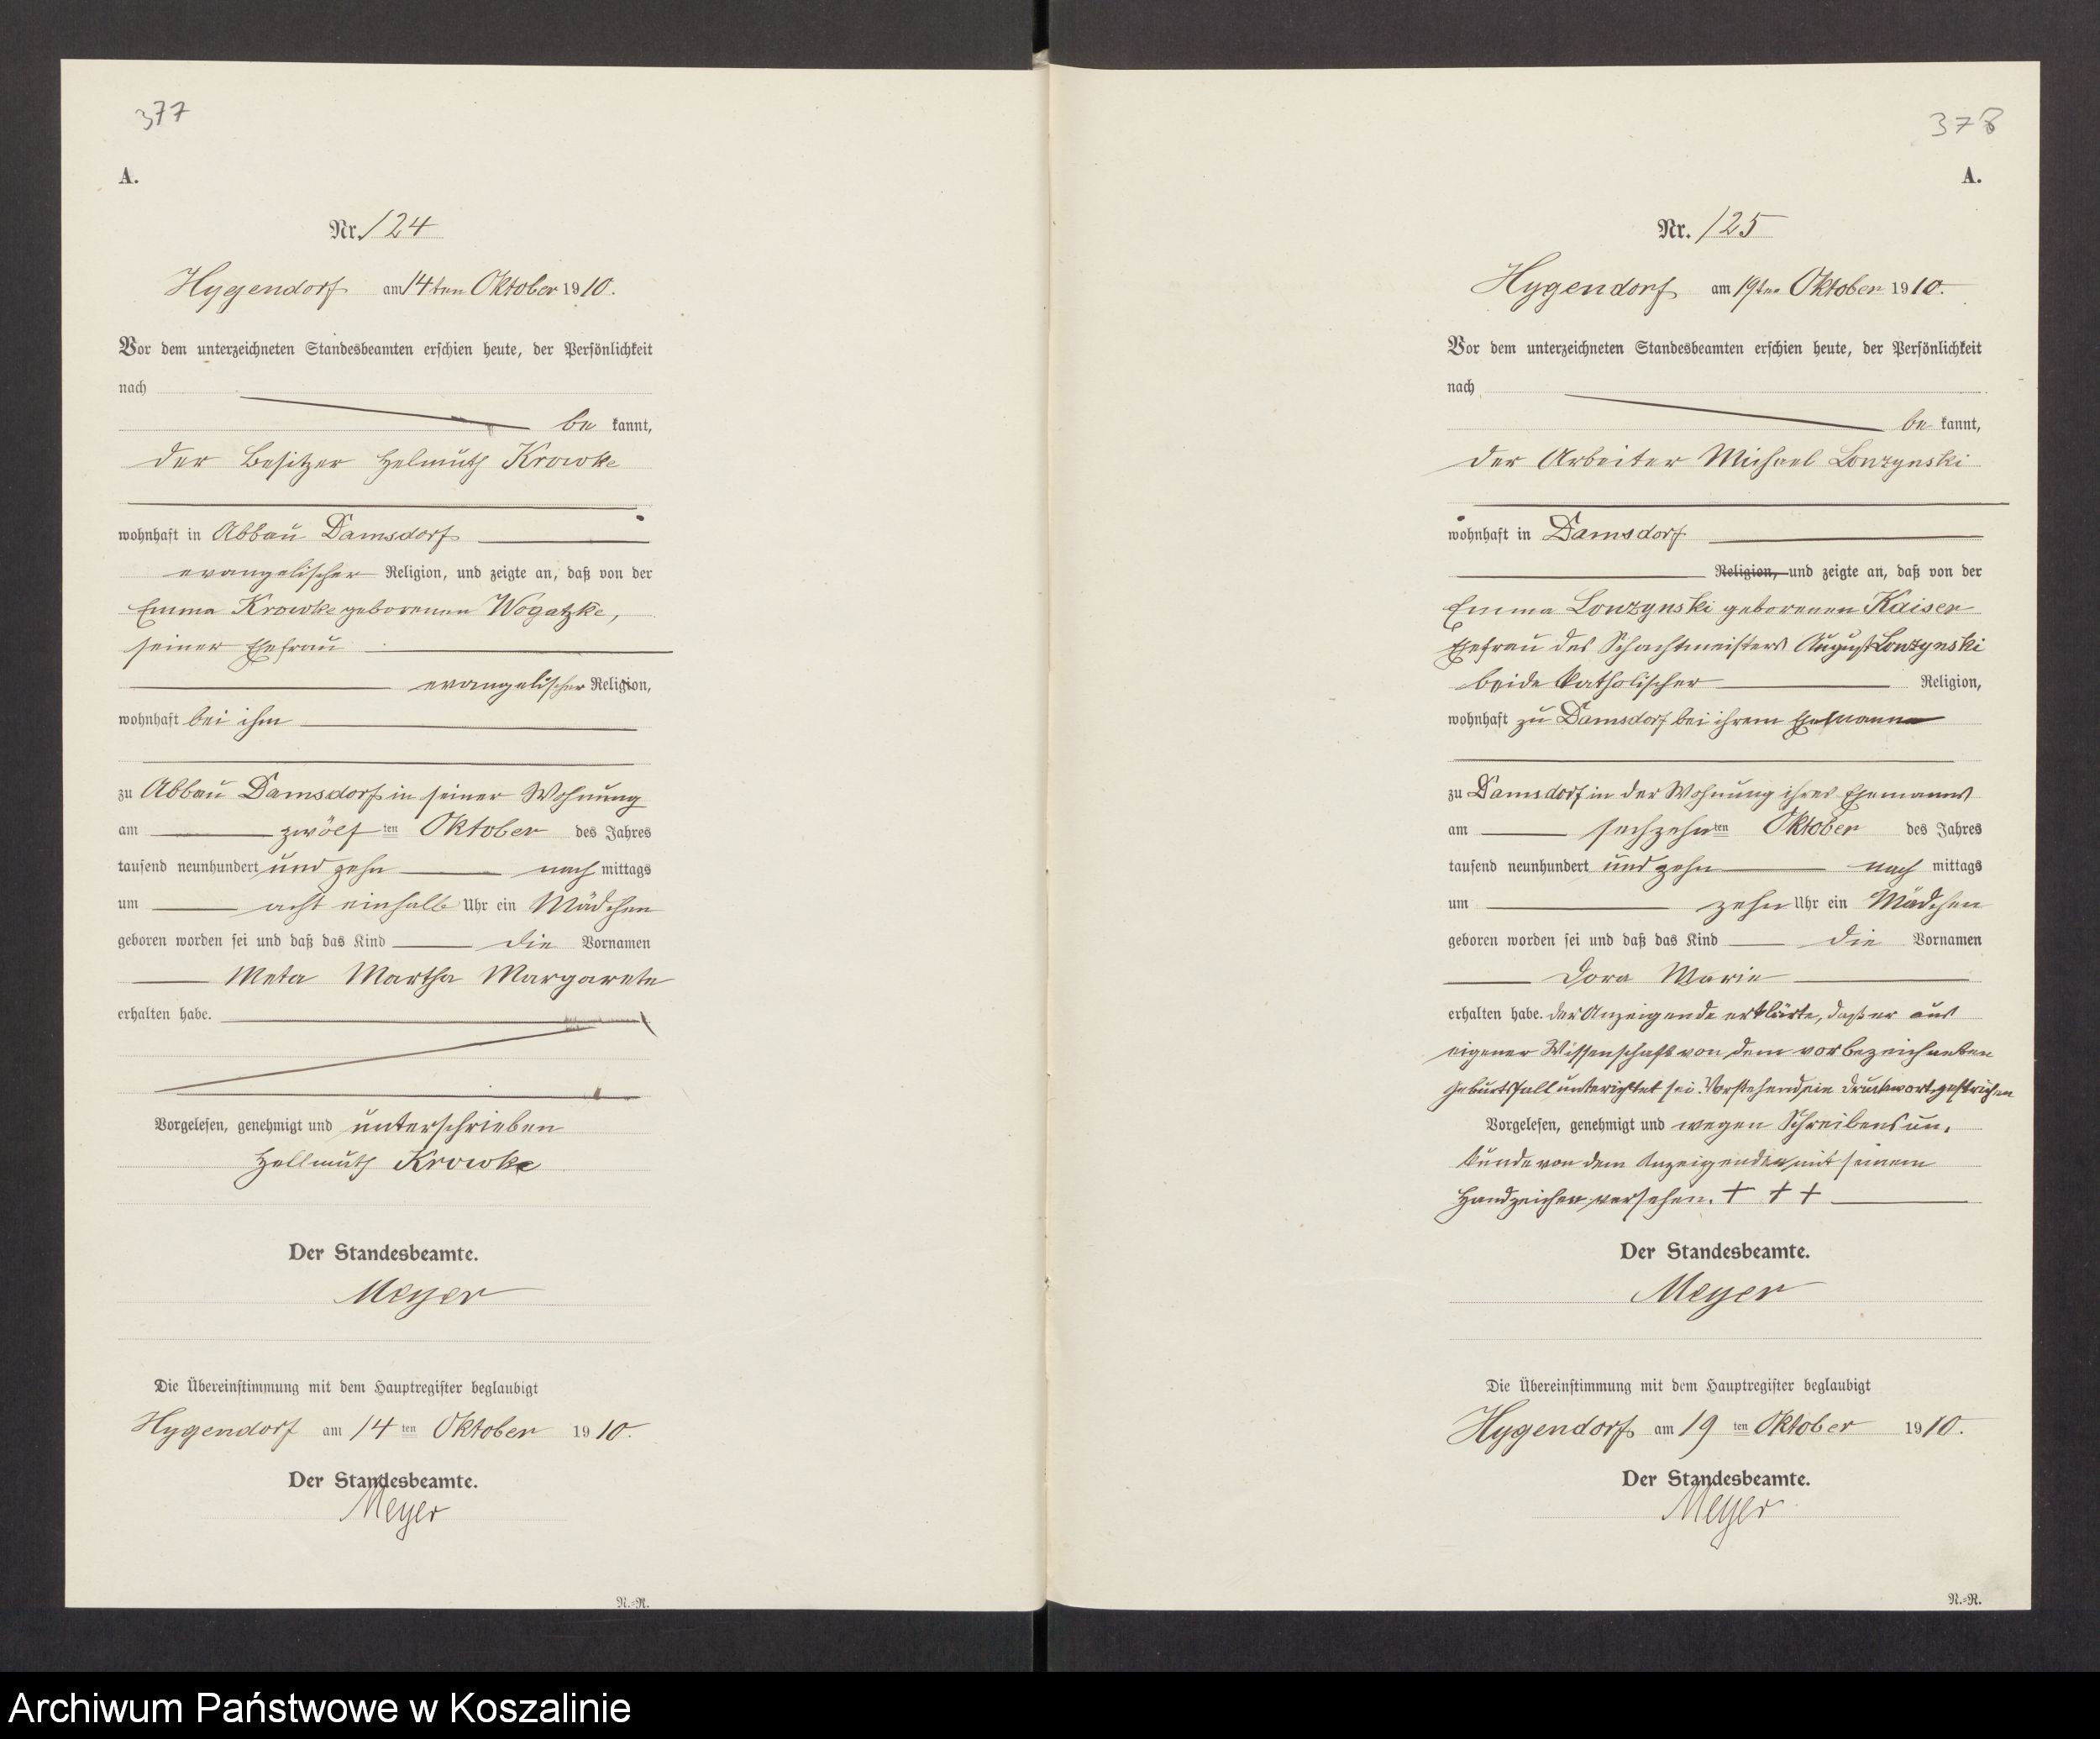 377
A.
Nr. 124
Hygendorf am 14ten Oktober 1910.
Vor dem unterzeichneten Standesbeamten erschien heute, der Persönlichkeit
nach
be kannt,
der Besitzer Helmuth Krowke
wohnhaft in Abbau Damsdorf
evangelischer Religion, und zeigte an, daß von der
Emma Krowke geborenen Wogatzke,
seiner Ehefrau
evangelischer Religion,
wohnhaft bei ihm
zu Abbau Damsdorf in seiner Wohnung
am zwölften Oktober des Jahres
tausend neunhundert und zehn nach mittags
um acht einhalb Uhr ein Mädchen
geboren worden sei und daß das Kind die Vornamen
Meta Martha Margarete
erhalten habe.
Vorgelesen, genehmigt und unterschrieben
Hellmuth Krowke
Der Standesbeamte.
Meyer
Die Übereinstimmung mit dem Hauptregister beglaubigt
Hygendorf am 14ten Oktober 1910.
Der Standesbeamte.
Meyer
N.=R.
378
A.
Nr. 125
Hygendorf am 19ten Oktober 1910.
Vor dem unterzeichneten Standesbeamten erschien heute, der Persönlichkeit
nach
be kannt,
der Arbeiter Michael Lonzynski
wohnhaft in Damsdorf
Religion, und zeigte an, daß von der
Emma Lonzynski geborenen Kaiser
Ehefrau des Schachtmeisters August Lonzynski
beide katholischer Religion,
wohnhaft zu Damsdorf bei ihrem Ehemanne
zu Damsdorf in der Wohnung ihres Ehemanns
am sechzehnten Oktober des Jahres
tausend neunhundert und zehn nach mittags
um zehn Uhr ein Mädchen
geboren worden sei und daß das Kind die Vornamen
Dora Marie
erhalten habe. Der Anzeigende erklärte, daß er aus
eigener Wissenschaft von dem vorbezeichneten
Geburtsfall unterichtet sei. Vorstehend ein Druckwort gestrichen
Vorgelesen, genehmigt und wegen Schreibensun-
kunde von dem Anzeigenden mit seinem
Handzeichen versehen. + + +
Der Standesbeamte.
Meyer
Die Übereinstimmung mit dem Hauptregister beglaubigt
Hygendorf am 19ten Oktober 1910.
Der Standesbeamte.
Meyer
N.=R.
Archiwum Państwowe w Koszalinie